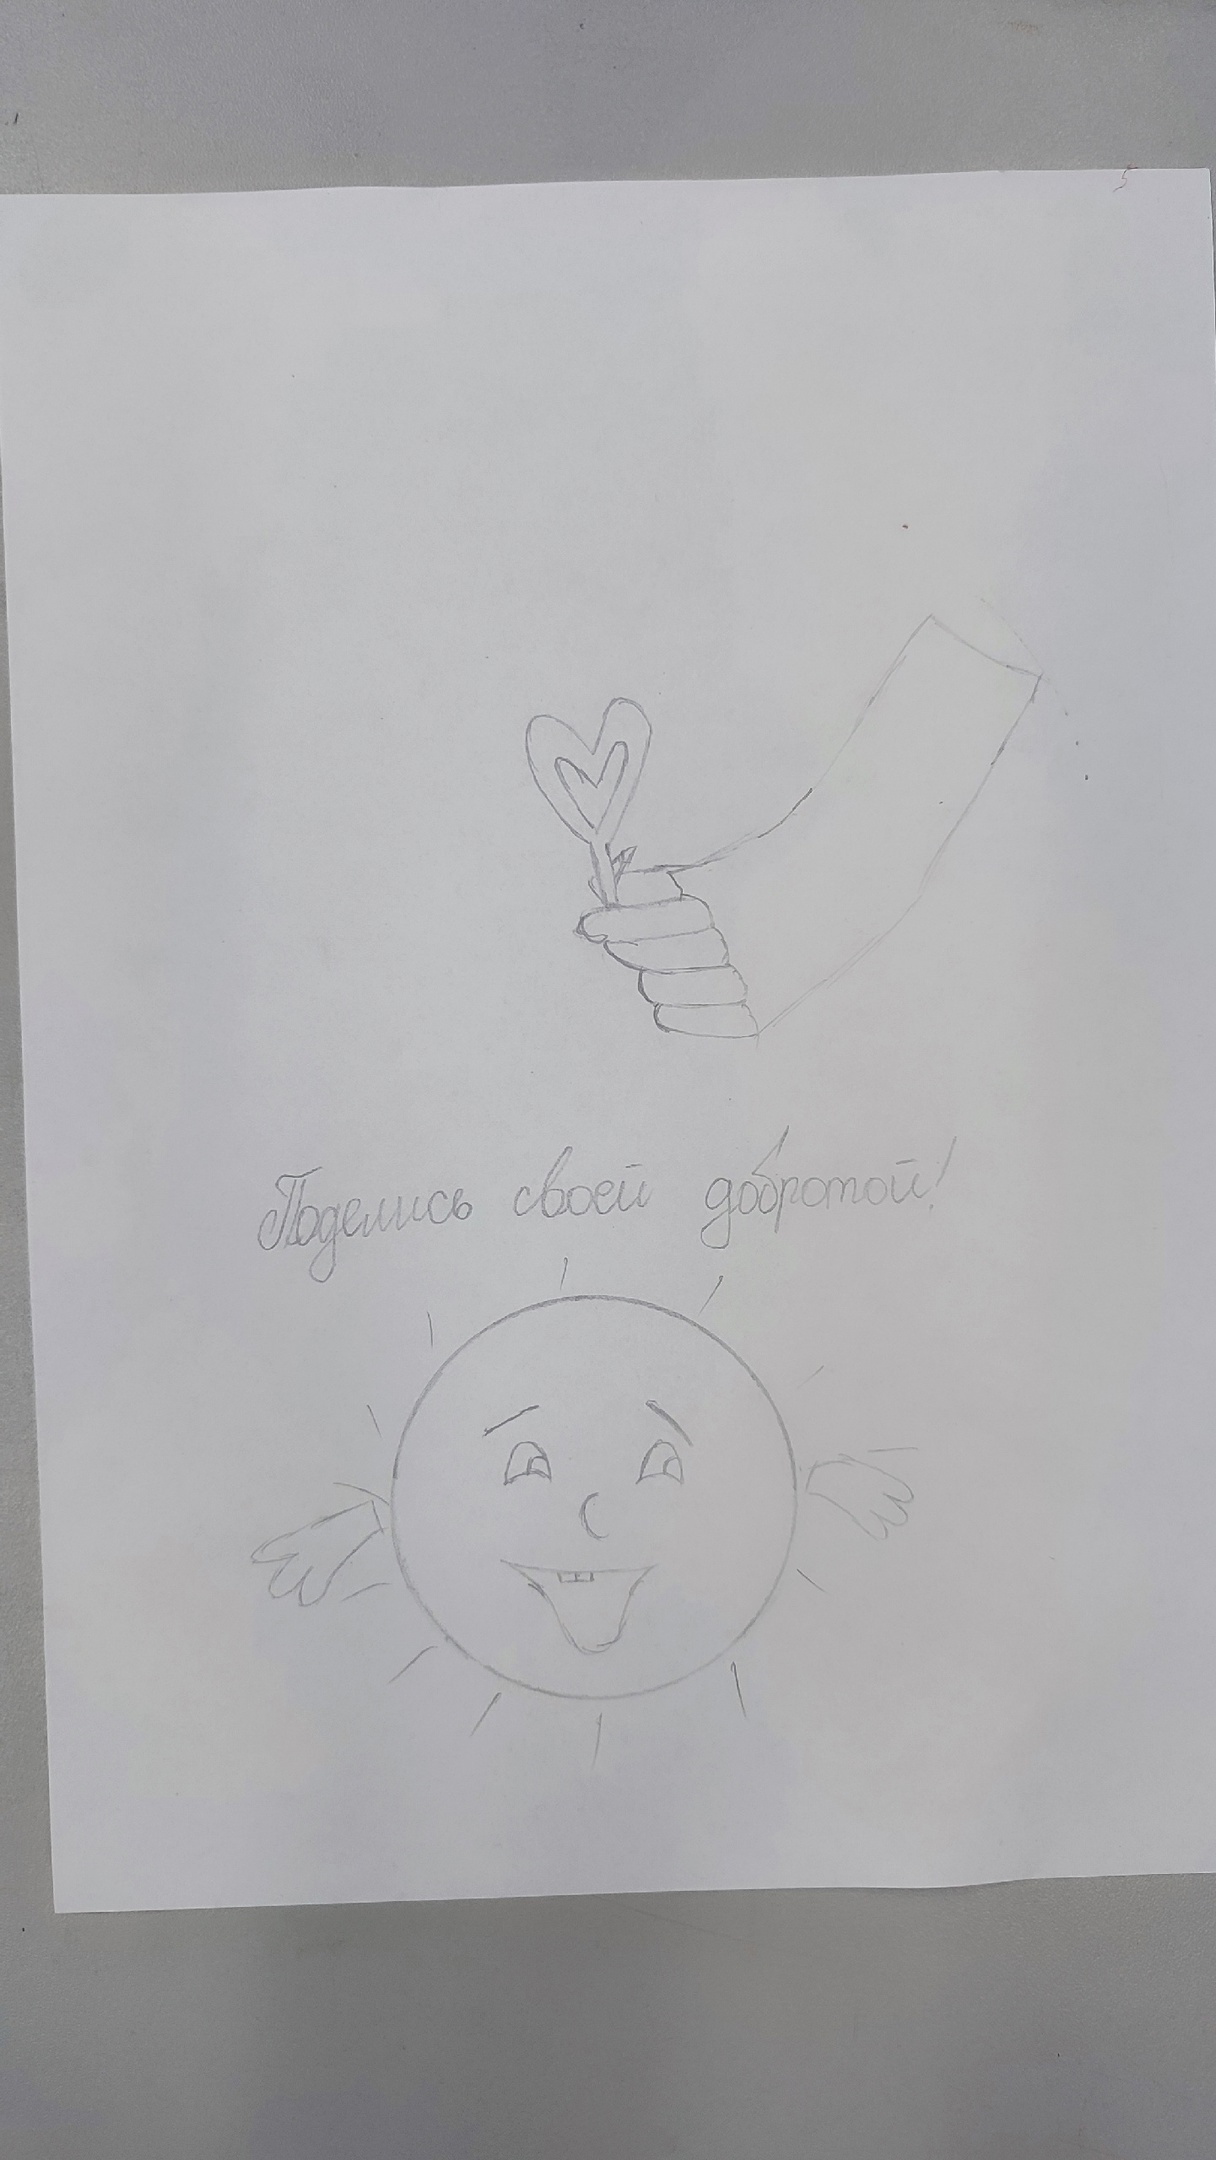 Поделись своей добротой!